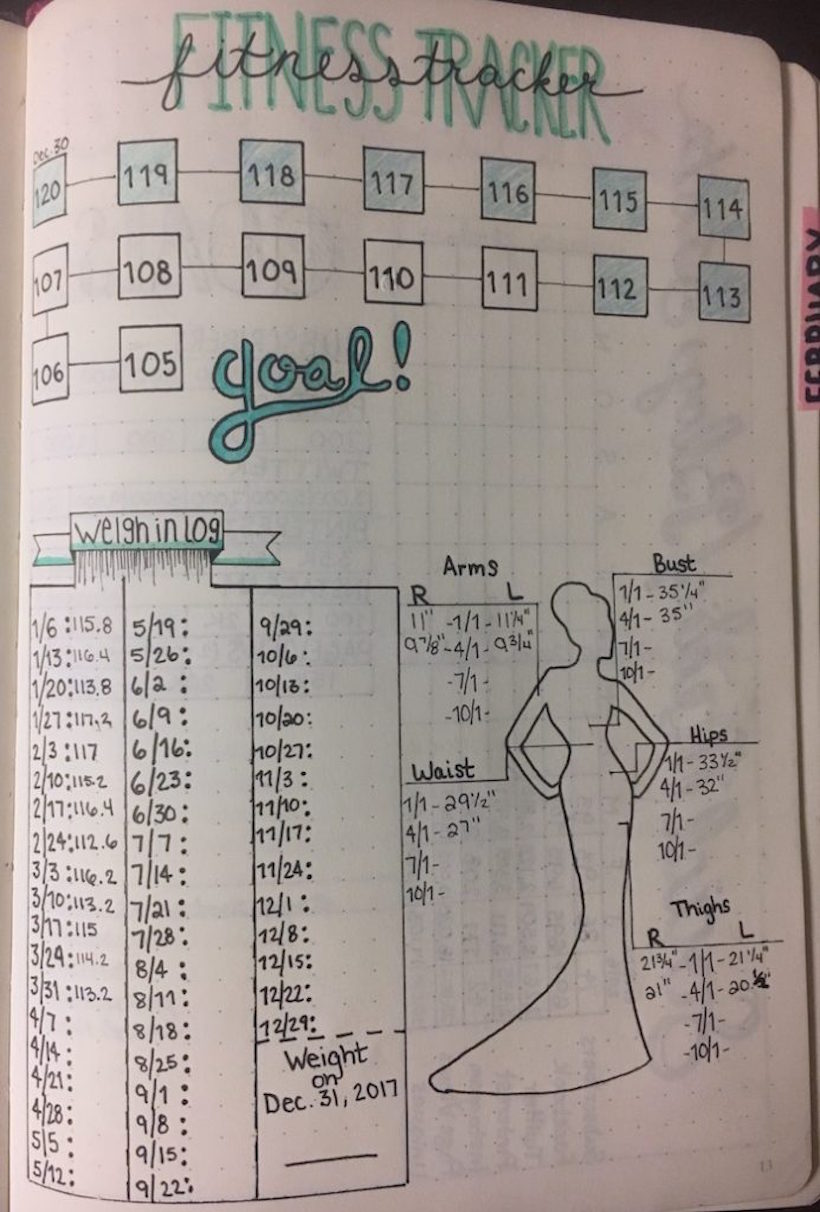 FITNESS TRACKER
fitness tracker
Dec. 30
120 119 118 117 116 115 114
107 108 109 110 111 112 113
106 105 goal!
FEBRUARY
Weigh in Log
1/6 : 115.8
1/13 : 116.4
1/20 : 113.8
1/27 : 117.2
2/3 : 117
2/10 : 115.2
2/17 : 116.4
2/24 : 112.6
3/3 : 116.2
3/10 : 113.2
3/17 : 115
3/24 : 114.2
3/31 : 113.2
4/7 :
4/14 :
4/21 :
4/28 :
5/5 :
5/12 :
5/19 :
5/26 :
6/2 :
6/9 :
6/16 :
6/23 :
6/30 :
7/7 :
7/14 :
7/21 :
7/28 :
8/4 :
8/11 :
8/18 :
8/25 :
9/1 :
9/8 :
9/15 :
9/22 :
9/29 :
10/6 :
10/13 :
10/20 :
10/27 :
11/3 :
11/10 :
11/17 :
11/24 :
12/1 :
12/8 :
12/15 :
12/22 :
12/29 :
Weight
on
Dec. 31, 2017
Arms
R L
11" - 1/1 - 11 1/4"
9 7/8" - 4/1 - 9 3/4"
- 7/1 -
- 10/1 -
Bust
1/1 - 35 1/4"
4/1 - 35"
7/1 -
10/1 -
Waist
1/1 - 29 1/2"
4/1 - 27"
7/1 -
10/1 -
Hips
1/1 - 33 1/2"
4/1 - 32"
7/1 -
10/1 -
Thighs
R L
21 3/4" - 1/1 - 21 1/4"
21" - 4/1 - 20
- 7/1 -
- 10/1 -
13